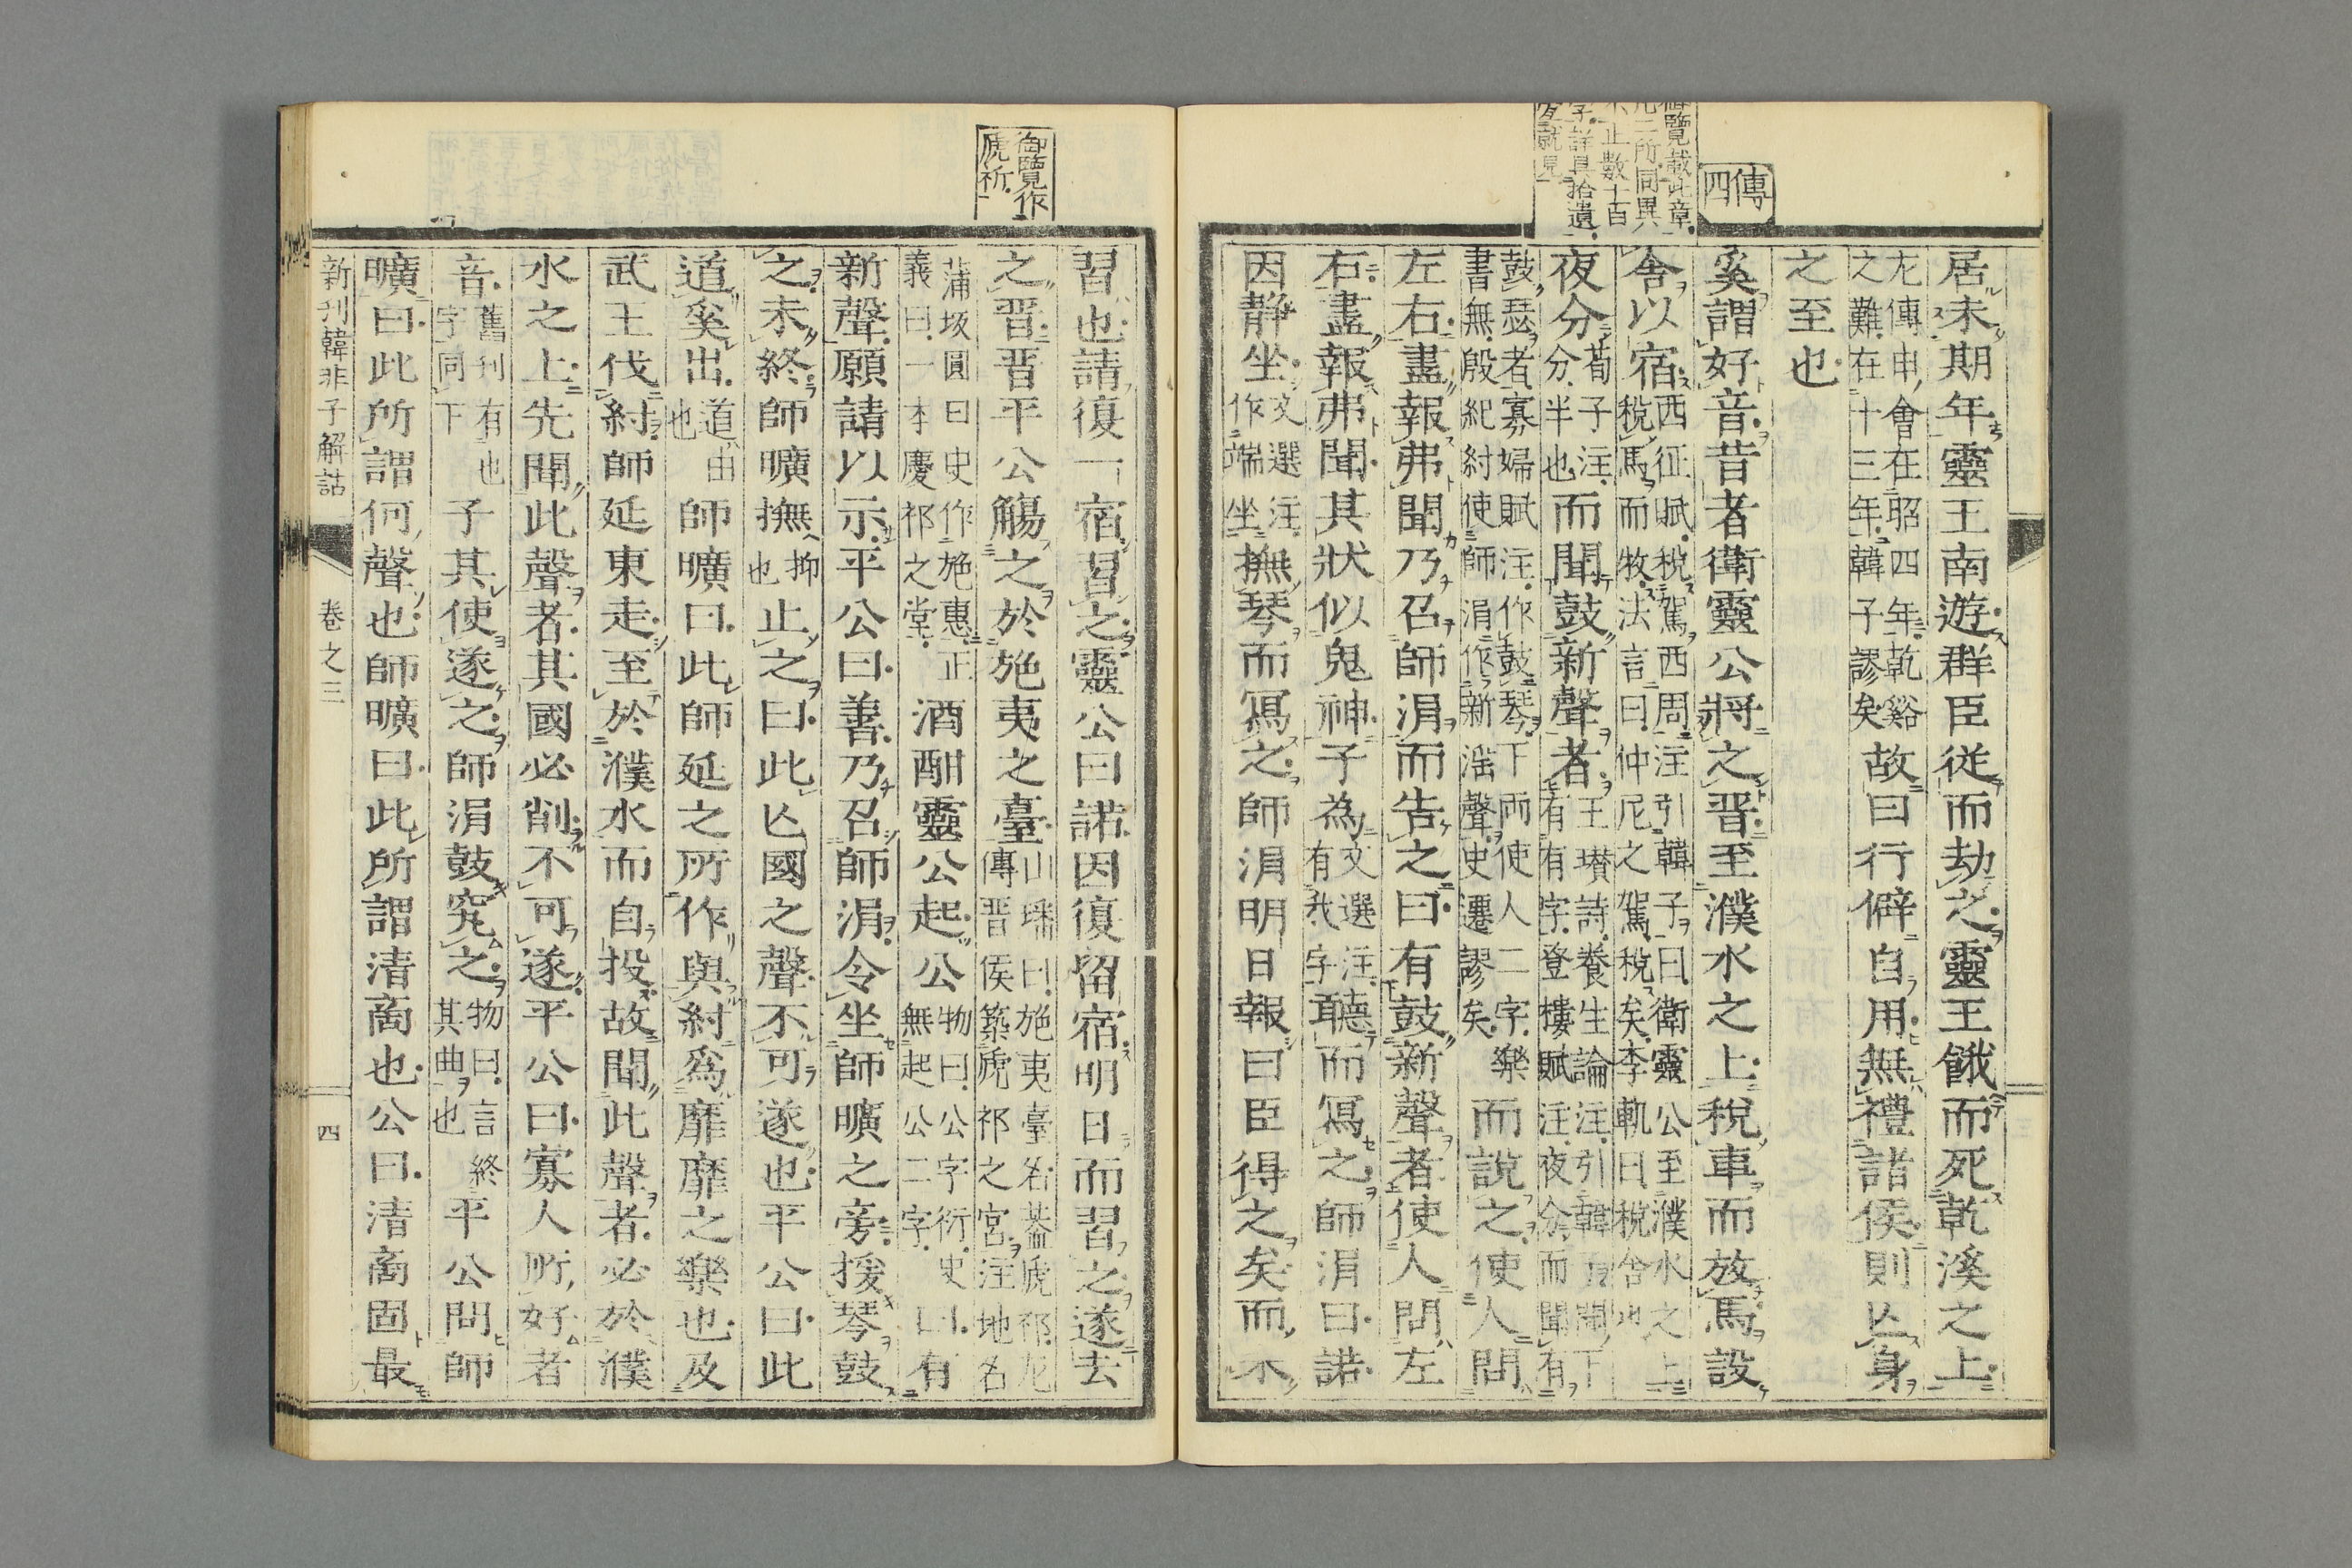 御覽載此章
凡二所同異
不止數十百
字詳具拾遺
宜就見
傳四
居未期年靈王南遊群臣從而劫之靈王餓而死乾溪之上
左傳申會在昭四年乾谿
之難在十三年韓子謬矣
故曰行僻自用無禮諸侯則亾身
之至也
奚謂好音昔者衛靈公將之晋至濮水之上税車而放馬設
舍以宿
西征賦税駕西周注引韓子曰衛靈公至濮水之上
税馬而牧法言曰仲尼之駕税矣李軌曰税舍也
夜分
荀子注
分半也
而聞鼓新聲者
王瓚詩養生論注引韓
有有字登樓賦注夜分而聞有
鼓瑟者寡婦賦注作鼓琴下両使人二字樂
書無殷紀紂使師涓作新滛聲史遷謬矣
而說之使人問
左右盡報弗聞乃召師涓而告之曰有鼓新聲者使人問左
右盡報弗聞其狀似鬼神子為
文選注
有我字
聽而冩之師涓曰諾
因静坐
文選注
作端坐
撫琴而冩之師涓明日報曰臣得之矣而不
御覽作
虒祈
習也請復一宿習之靈公曰諾因復留宿明日而習之遂去
之晋晋平公觴之於施夷之臺
山璨曰施夷臺名葢虒祁左
傳晋侯築虒祁之宮注地名
蒲坂圓曰史作施惠正
義曰一本慶祁之堂
酒酣靈公起公
物曰公字衍史曰
無起公二字
有
新聲願請以示平公曰善乃召師涓令坐師曠之旁援琴鼓
之未終師曠撫
抑
也
止之曰此亾國之聲不可遂也平公曰此
道奚出
道由
也
師曠曰此師延之所作與紂爲靡靡之樂也及
武王伐紂師延東走至於濮水而自投故聞此聲者必於濮
水之上先聞此聲者其國必削不可遂平公曰寡人所好者
音
舊刊有也
字同下
子其使遂之師涓鼓究之
物曰言終
其曲也
平公問師
曠曰此所謂何聲也師曠曰此所謂清商也公曰清商固最
新刊韓非子解詁
卷之三
四